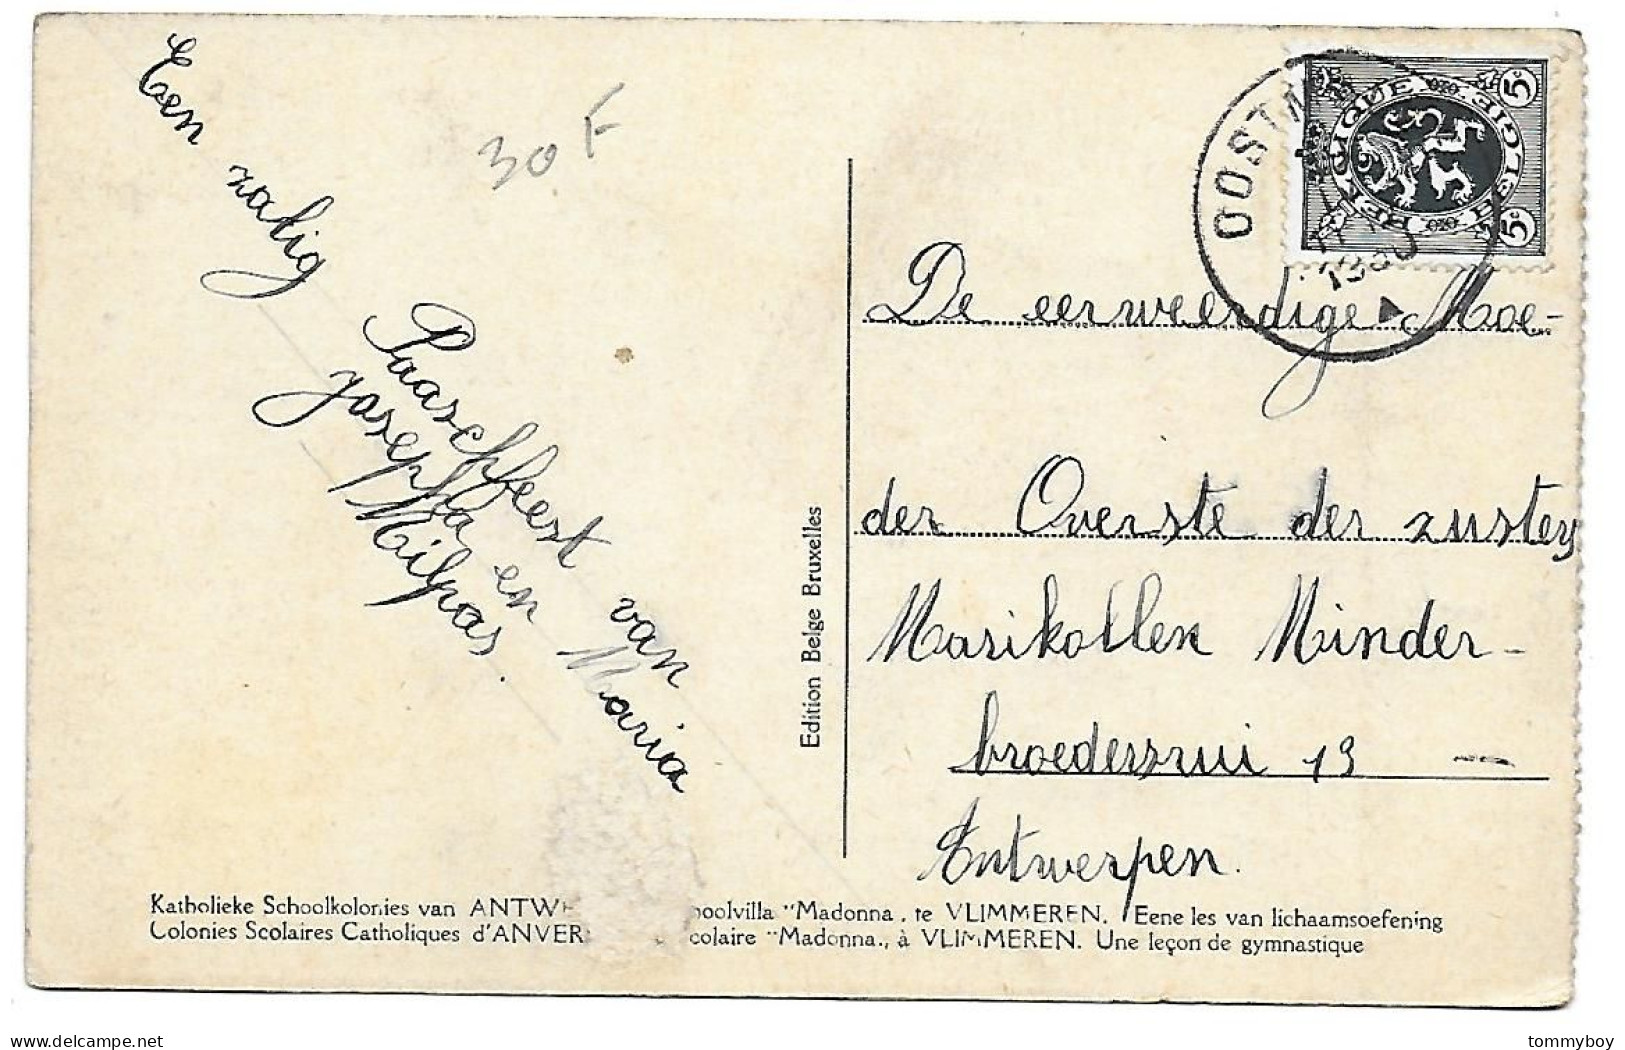 Een zalig
Paaschfeest van
Josepha en Maria
Milpas.
30 F
BELGIQUE BELGIË
5c 5c
1930
De eerweerdige Moe-
der Overste der zusters
Marikollen Minder-
broedersrui 19
Antwerpen.
Edition Belge Bruxelles
Katholieke Schoolkolonies van ANTWE oolvilla "Madonna, te VLIMMEREN. Eene les van lichaamsoefening
Colonies Scolaires Catholiques d'ANVER colaire "Madonna,, à VLIMMEREN. Une leçon de gymnastique
tommyboy